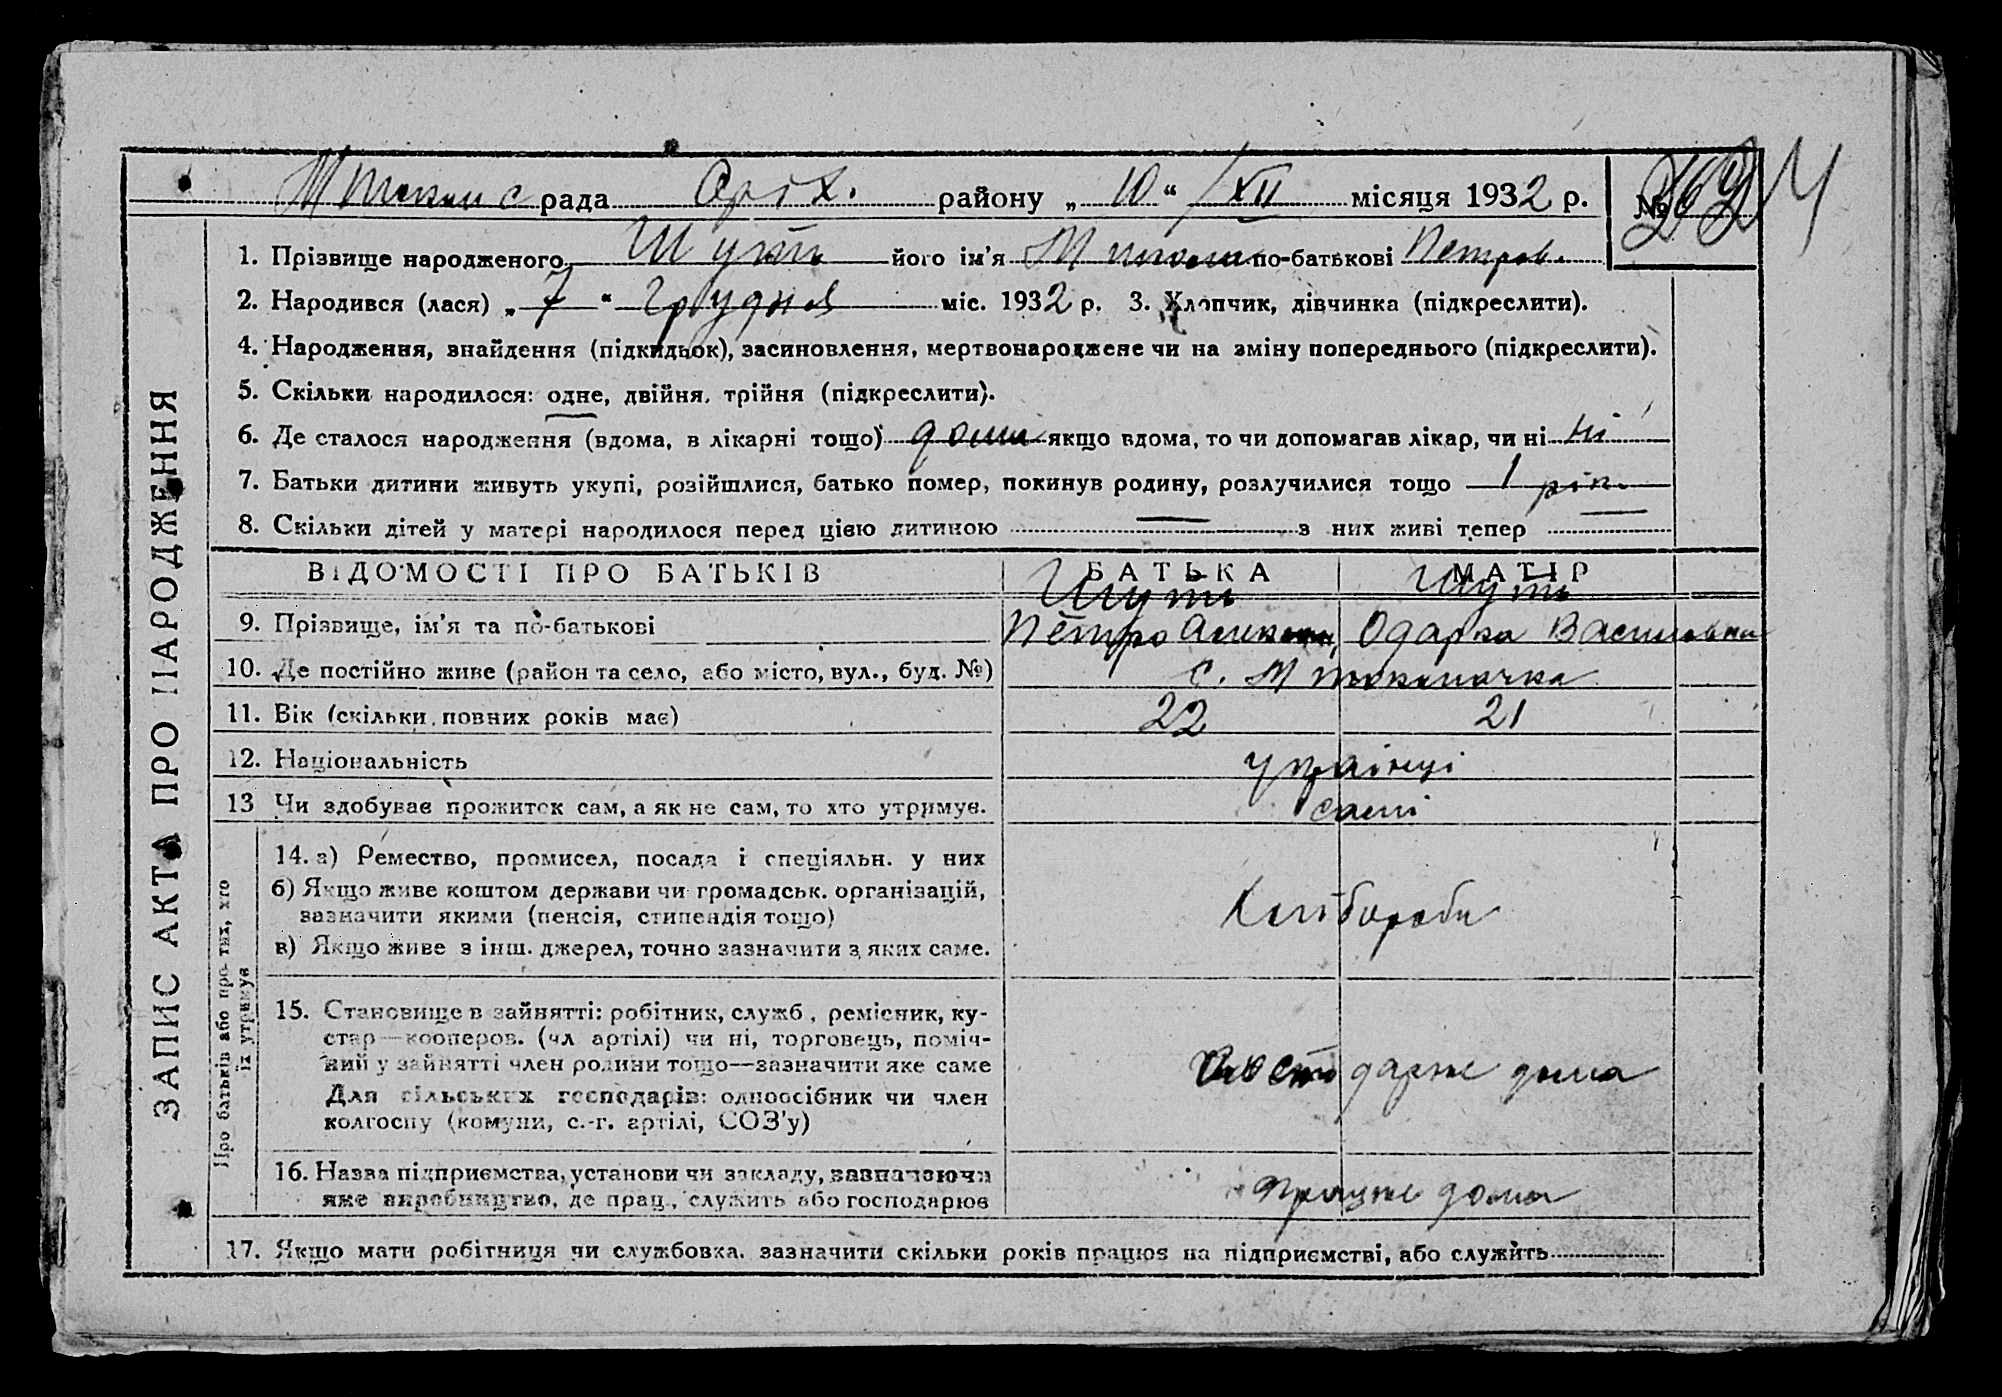 рада Оріх. району „ 10 “ /XII місяця 1932 р. №
1. Прізвище народженого Шуть його ім'я Микола по-батькові Петров.
2. Народився (лася) „ 7 “ грудня міс. 1932 р. 3. Хлопчик, дівчинка (підкреслити).
4. Народження, знайдення (підкидьок), засиновлення, мертвонароджене чи на зміну попереднього (підкреслити).
5. Скільки народилося: одне, двійня, трійня (підкреслити).
6. Де сталося народження (вдома, в лікарні тощо) дома якщо вдома, то чи допомагав лікар, чи ні ні
7. Батьки дитини живуть укупі, розійшлися, батько помер, покинув родину, розлучилися тощо 1 рік
8. Скільки дітей у матері народилося перед цією дитиною — з них живі тепер —
ВІДОМОСТІ ПРО БАТЬКІВ БАТЬКА МАТІР
Шуть Шуть
9. Прізвище, ім'я та по-батькові Петро Одарка Василівна
10. Де постійно живе (район та село, або місто, вул., буд. №) с. М токмачка
11. Вік (скільки повних років має) 22 21
12. Національність українці
13 Чи здобуває прожиток сам, а як не сам, то хто утримує. самі
14. а) Ремество, промисел, посада і спеціяльн. у них
б) Якщо живе коштом держави чи громадськ. організацій,
зазначити якими (пенсія, стипендія тощо)
Хлібороби
в) Якщо живе з інш. джерел, точно зазначити з яких саме.
15. Становище в зайнятті: робітник, служб, ремісник, ку-
стар—кооперов. (чл артілі) чи ні, торговець, поміч-
ний у зайнятті член родини тощо—зазначити яке саме
дома
Для сільських господарів: одноосібник чи член
колгоспу (комуни, с.-г. артілі, СОЗ'у)
16. Назва підприємства, установи чи закладу, зазначаючи
яке виробництво, де прац., служить або господарює
працює дома
17. Якщо мати робітниця чи службовка, зазначити скільки років працює на підприємстві, або служить
ЗАПИС АКТА ПРО НАРОДЖЕННЯ
Про батьків або про тих, хто
їх утримує